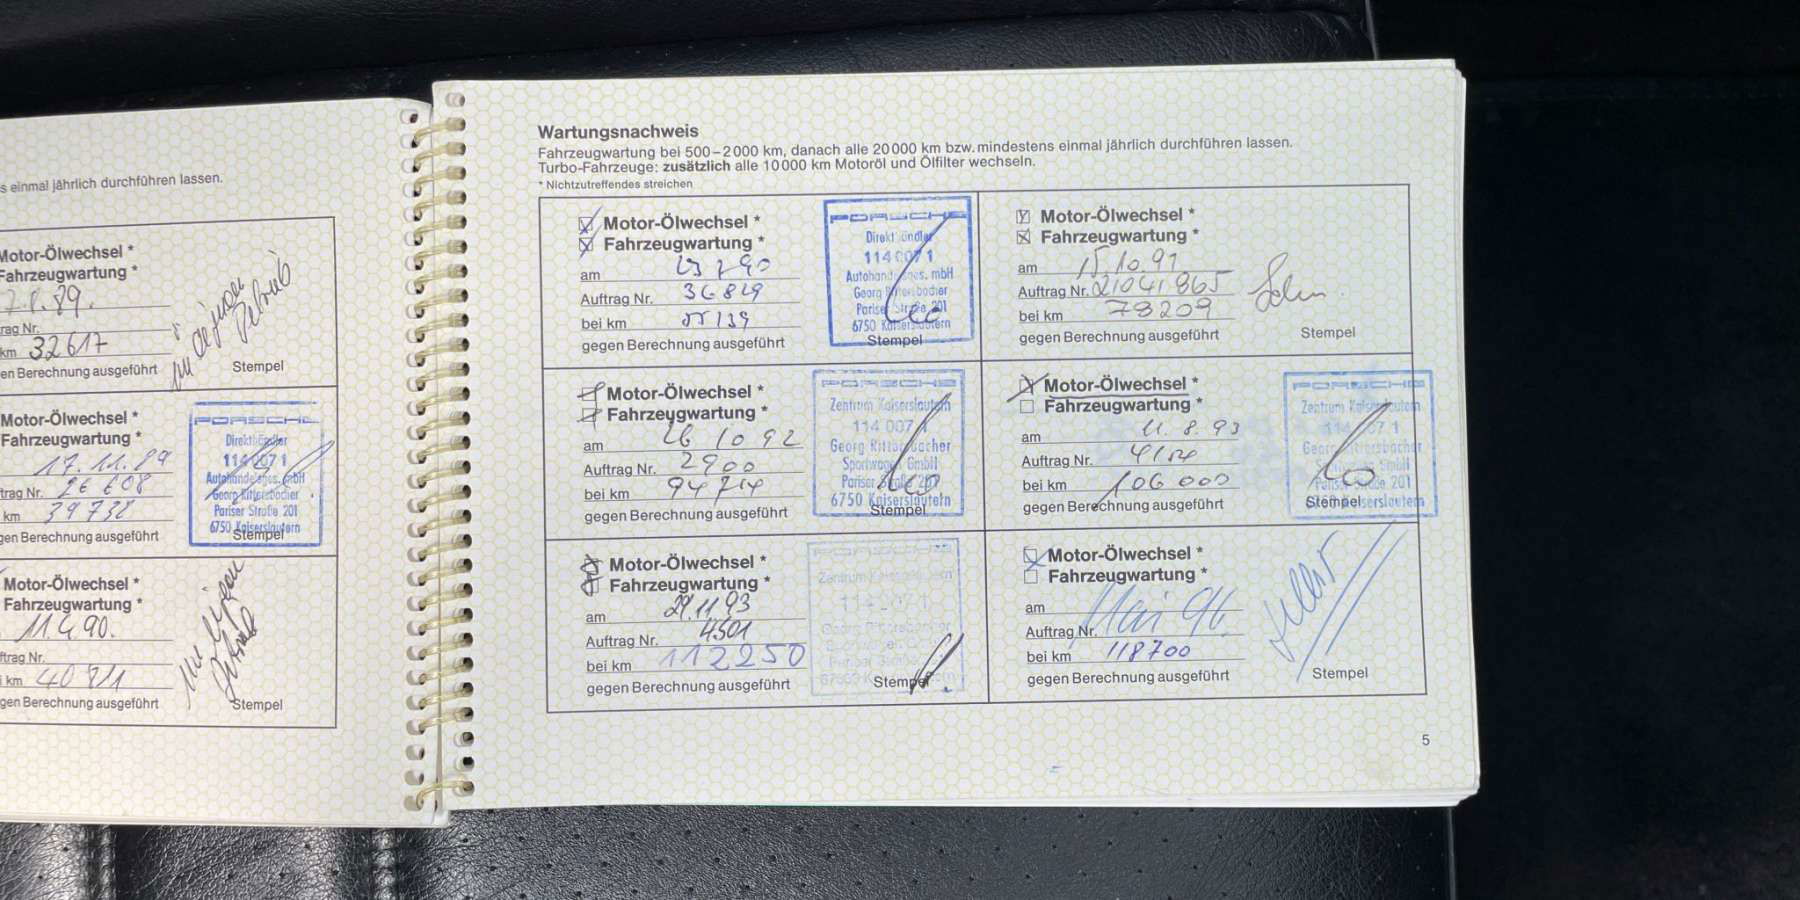 s einmal jährlich durchführen lassen.
Motor-Ölwechsel *
Fahrzeugwartung *
7.8.89.
rag Nr.
km 32617
en Berechnung ausgeführt
Stempel
Motor-Ölwechsel *
Fahrzeugwartung *
17.11.89
trag Nr. 26608
km 39732
gen Berechnung ausgeführt
PORSCHE
Direkthändler
114 007 1
Autohandelsges. mbH
Georg Rittersbacher
Pariser Straße 201
6750 Kaiserslautern
Stempel
Motor-Ölwechsel *
Fahrzeugwartung *
11.4.90.
ftrag Nr.
i km
gen Berechnung ausgeführt
Stempel
Wartungsnachweis
Fahrzeugwartung bei 500–2000 km, danach alle 20000 km bzw. mindestens einmal jährlich durchführen lassen.
Turbo-Fahrzeuge: zusätzlich alle 10000 km Motoröl und Ölfilter wechseln.
* Nichtzutreffendes streichen
Motor-Ölwechsel *
Fahrzeugwartung *
am
Auftrag Nr. 36829
bei km 55139
gegen Berechnung ausgeführt
PORSCHE
Direkthändler
114 007 1
Autohandelsges. mbH
Georg Rittersbacher
Pariser Straße 201
6750 Kaiserslautern
Stempel
Motor-Ölwechsel *
Fahrzeugwartung *
am 15.10.91
Auftrag Nr. 21041865
bei km 78209
gegen Berechnung ausgeführt
Stempel
Motor-Ölwechsel *
Fahrzeugwartung *
am 26 10 92
Auftrag Nr. 2900
bei km 94714
gegen Berechnung ausgeführt
PORSCHE
Zentrum Kaiserslautern
114 007 1
Georg Rittersbacher
Sportwagen GmbH
Pariser Straße 201
6750 Kaiserslautern
Stempel
Motor-Ölwechsel *
Fahrzeugwartung *
am 11.8.93
Auftrag Nr.
bei km 106000
gegen Berechnung ausgeführt
PORSCHE
Zentrum Kaiserslautern
114 007 1
Georg Rittersbacher
Sportwagen GmbH
Pariser Straße 201
6750 Kaiserslautern
Stempel
Motor-Ölwechsel *
Fahrzeugwartung *
am 29.11.93
Auftrag Nr. 4501
bei km 112250
gegen Berechnung ausgeführt
Zentrum Kaiserslautern
114 007 1
Georg Rittersbacher
Stempel
Motor-Ölwechsel *
Fahrzeugwartung *
am Mai 94.
Auftrag Nr.
bei km 118700
gegen Berechnung ausgeführt
Stempel
5